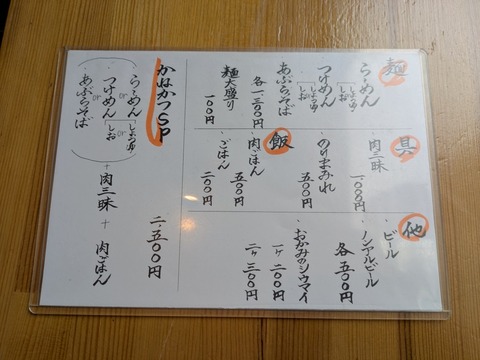 麺
らーめん
しょうゆ
しお
つけめん
しょうゆ
しお
あぶらそば
各一、三〇〇円
麺大盛り
一〇〇円
具
・肉三昧
一、〇〇〇円
・のりまみれ
五〇〇円
飯
・肉ごはん
五〇〇円
・ごはん
二〇〇円
他
・ビール
・ノンアルビール
各五〇〇円
・おかみのシウマイ
一ヶ二〇〇円
二ヶ三〇〇円
かねかつSP
らーめん
しょうゆ
or
しお
or
つけめん
しょうゆ
or
しお
or
あぶらそば
+
肉三昧
+
肉ごはん
二、五〇〇円